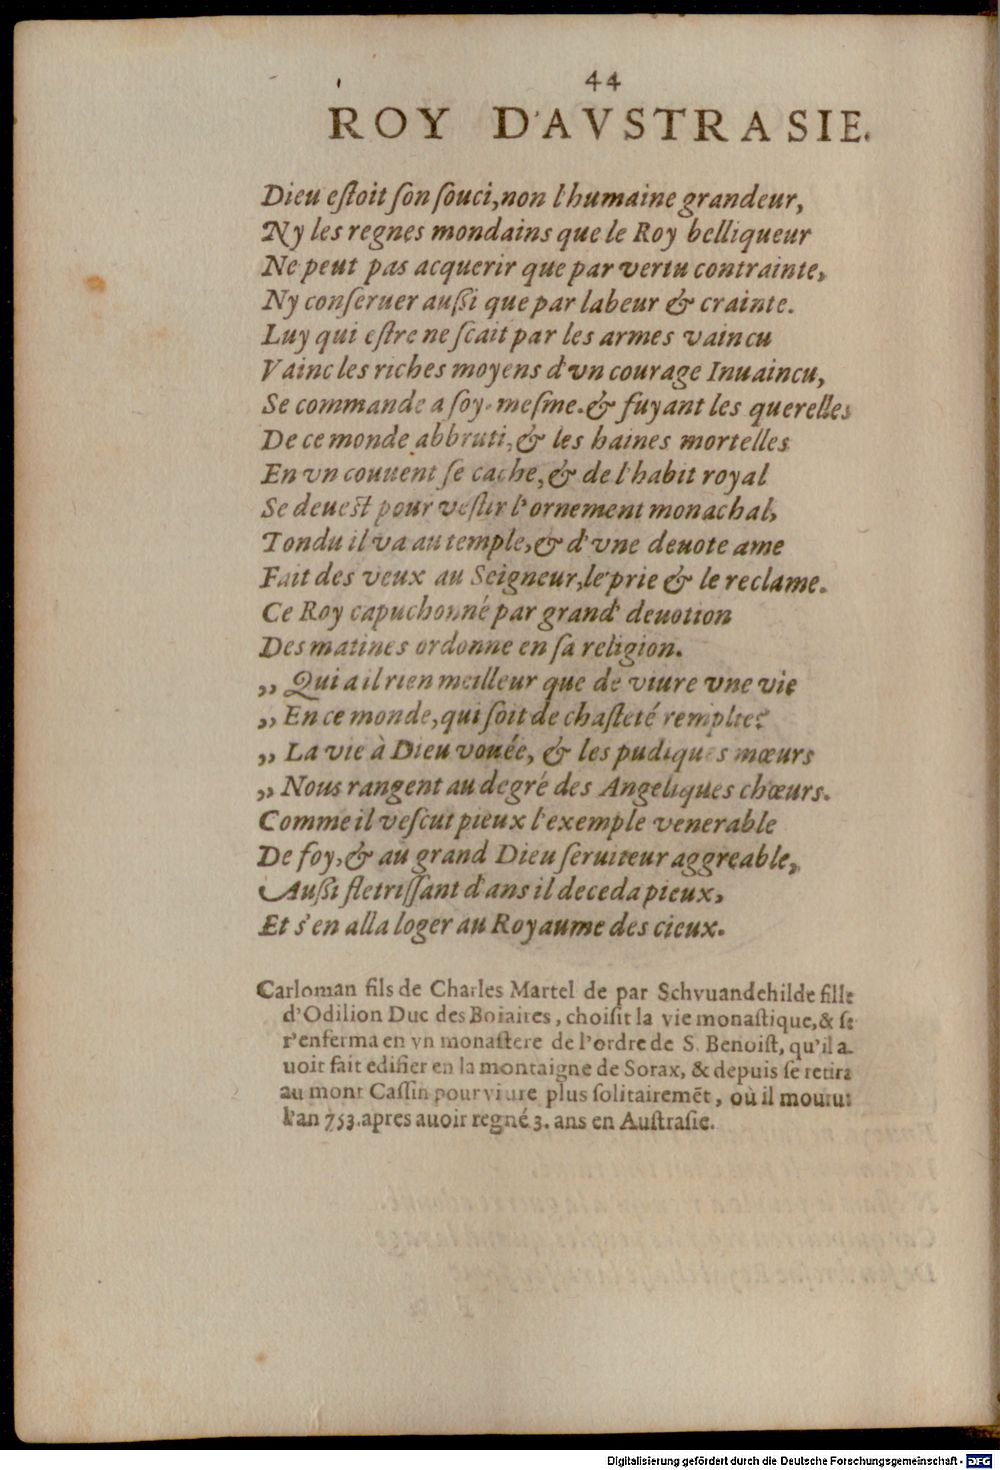 44
ROY D'AVSTRASIE.
Dieu eſtoit ſon ſouci, non l'humaine grandeur,
Ny les regnes mondains que le Roy belliqueur
Ne peut pas acquerir que par vertu contrainte,
Ny conſeruer auſſi que par labeur & crainte.
Luy qui eſtre ne ſcait par les armes vaincu
Vainc les riches moyens d'vn courage Inuaincu,
Se commande a ſoy-meſme. & fuyant les querelles
De ce monde abbruti, & les haines mortelles
En vn couuent ſe cache, & de l'habit royal
Se deueſt pour veſtir l'ornement monachal,
Tondu il va au temple, & d'vne deuote ame
Fait des veux au Seigneur, le prie & le reclame.
Ce Roy capuchonné par grand' deuotion
Des matines ordonne en ſa religion.
„ Qui a il rien meilleur que de viure vne vie
„ En ce monde, qui ſoit de chaſteté remplie?
„ La vie à Dieu vouée, & les pudiques mœurs
„ Nous rangent au degré des Angeliques chœurs.
Comme il veſcut pieux l'exemple venerable
De foy, & au grand Dieu ſeruiteur aggreable,
Auſſi fletriſſant d'ans il deceda pieux,
Et s'en alla loger au Royaume des cieux.
Carloman fils de Charles Martel de par Schvuandehilde fille
d'Odilion Duc des Boiaires, choiſit la vie monaſtique, & ſe
r'enferma en vn monaſtere de l'ordre de S. Benoiſt, qu'il a-
uoit fait edifier en la montaigne de Sorax, & depuis ſe retira
au mont Caſſin pour viure plus ſolitairemēt, où il mourut
l'an 753. apres auoir regné 3. ans en Auſtraſie.
Digitalisierung gefördert durch die Deutsche Forschungsgemeinschaft - DFG